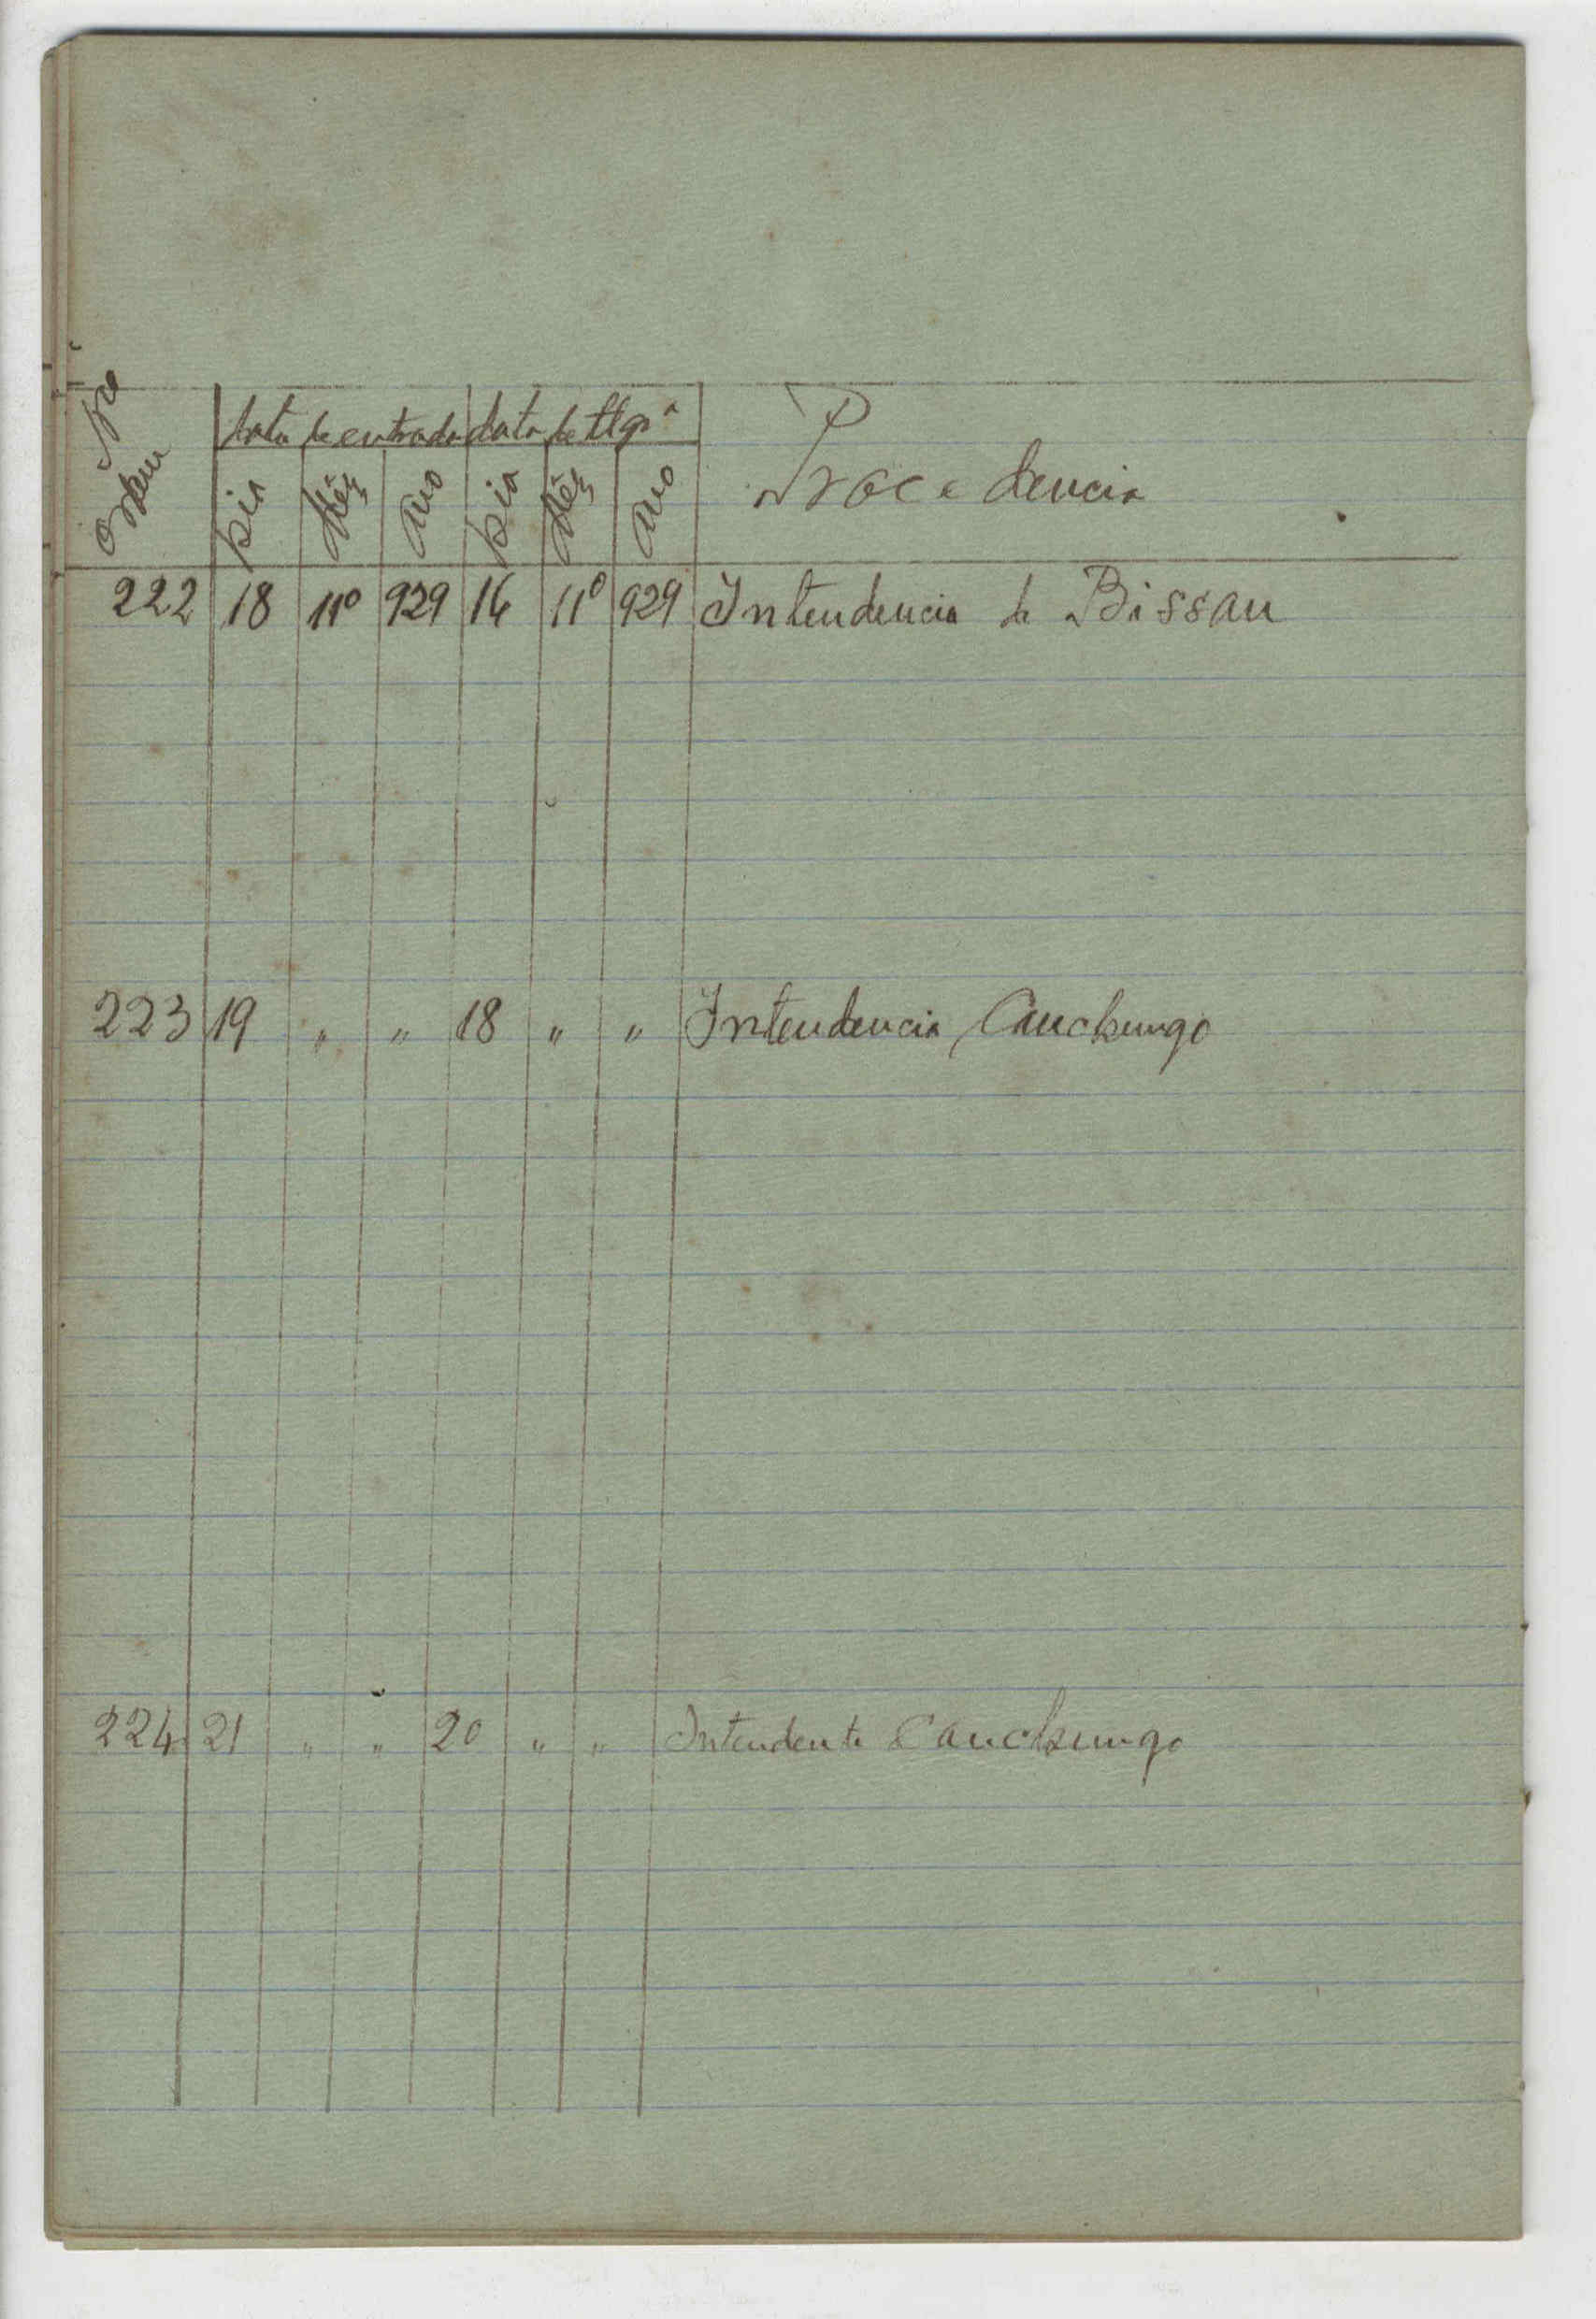 Nº Ordem
data de entrada data de tlgrª
Dia Mês Ano Dia Mês Ano Procedencia
222 18 11º 929 16 11º 929 Intendencia de Bissau
223 19 " " 18 " " Intendencia Canchungo
224 21 " " 20 " " Intendente Canchungo